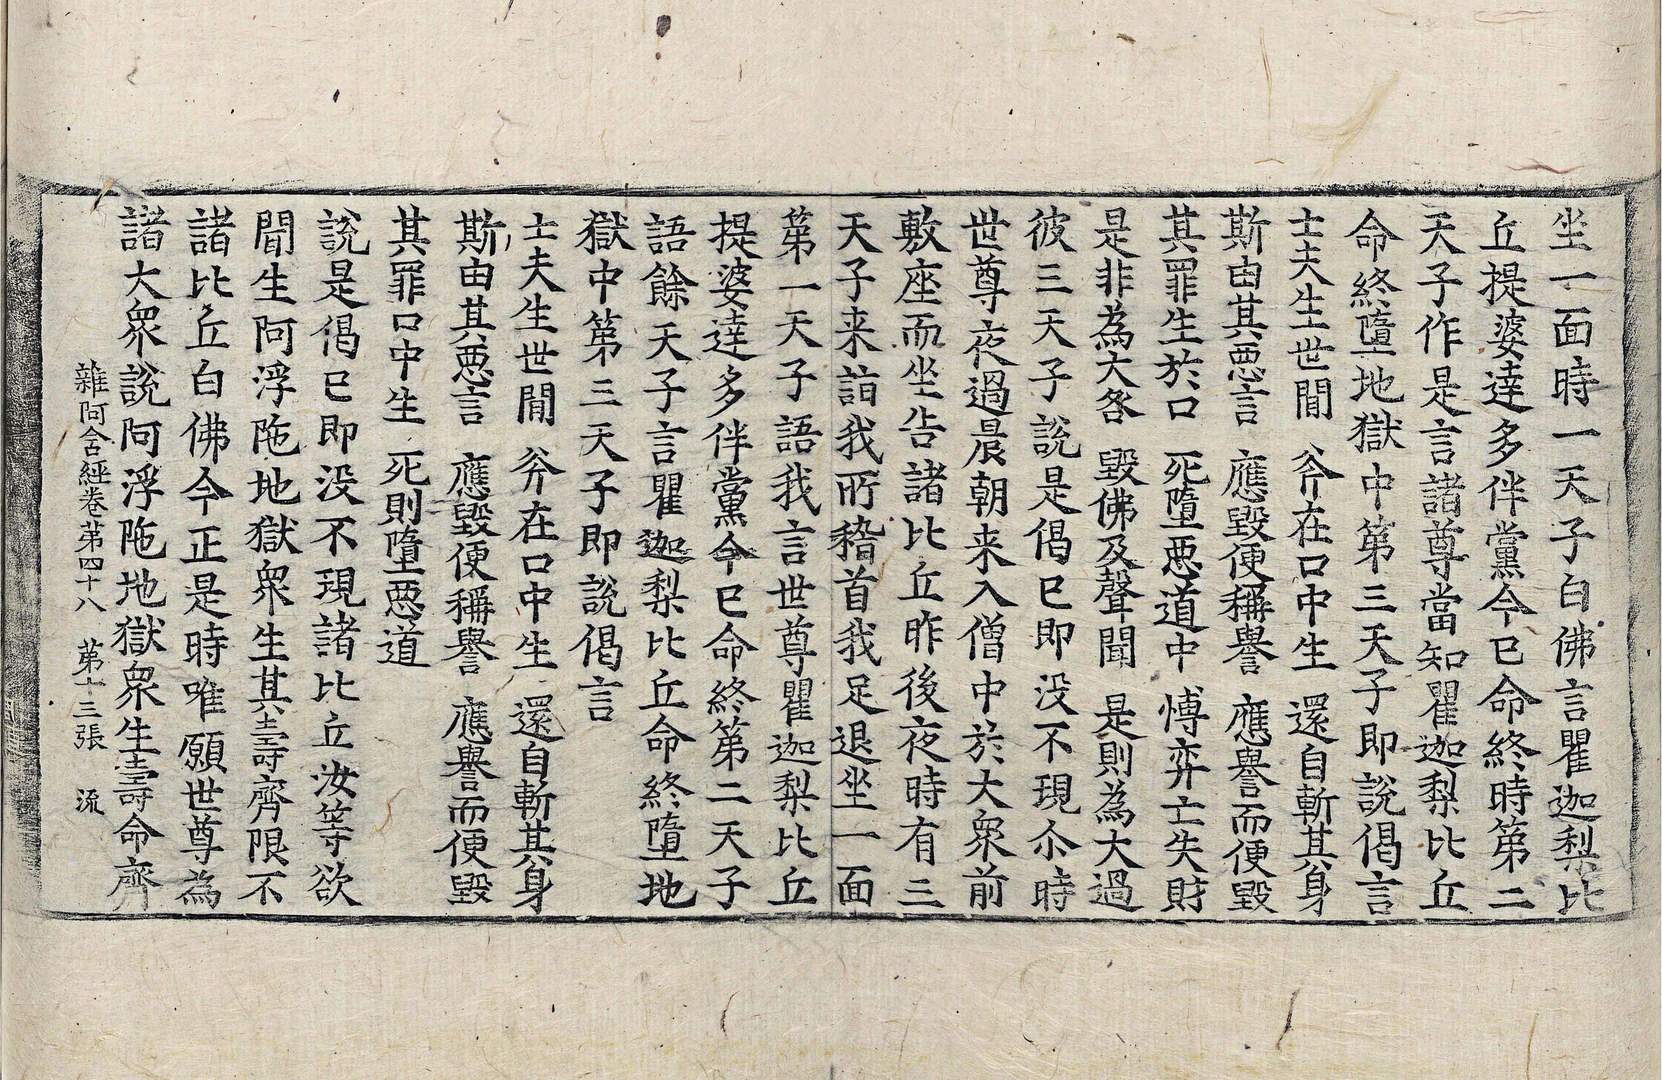 坐一面時一天子白佛言瞿迦梨比
丘提婆達多伴黨今已命終時第二
天子作是言諸尊當知瞿迦梨比丘
命終墮地獄中第三天子即說偈言
士夫生世間 斧在口中生 還自斬其身
斯由其惡言 應毀便稱譽 應譽而便毀
其罪生於口 死墮惡道中 博弈亡失財
是非為大咎 毀佛及聲聞 是則為大過
彼三天子說是偈已即没不現尒時
世尊夜過晨朝来入僧中於大衆前
敷座而坐告諸比丘昨後夜時有三
天子来詣我所稽首我足退坐一面
第一天子語我言世尊瞿迦梨比丘
提婆達多伴黨今已命終第二天子
語餘天子言瞿迦梨比丘命終墮地
獄中第三天子即說偈言
士夫生世間 斧在口中生 還自斬其身
斯由其惡言 應毀便稱譽 應譽而便毀
其罪口中生 死則墮惡道
說是偈已即没不現諸比丘汝等欲
聞生阿浮陁地獄衆生其壽齊限不
諸比丘白佛今正是時唯願世尊為
諸大衆說阿浮陁地獄衆生壽命齊
雜阿含經卷第四十八 第十三張 流